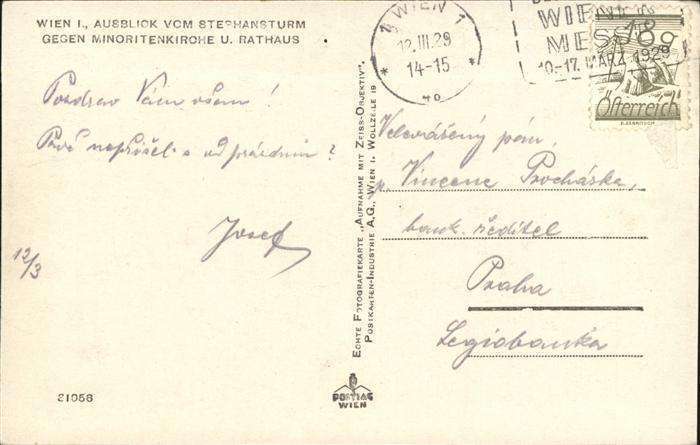 WIEN I., AUSBLICK VOM STEPHANSTURM
GEGEN MINORITENKIRCHE U. RATHAUS
Pozdrav Vám všem!
Proč nepřišel a od prázdnin?
Josef
12/3
31056
ECHTE FOTOGRAFIEKARTE „AUFNAHME MIT ZEISS-OBJEKTIV“.
POSTKARTEN-INDUSTRIE A.G., WIEN I. WOLLZEILE 19
POSTIAG
WIEN
WIEN 1
12.III.29
14-15
WIENER
MESSE
10.-17. MÄRZ 1929
18g
Österreich
Velevážený pán,
p. Vincenc Procháska,
bank. ředitel
Praha
Legiobanka